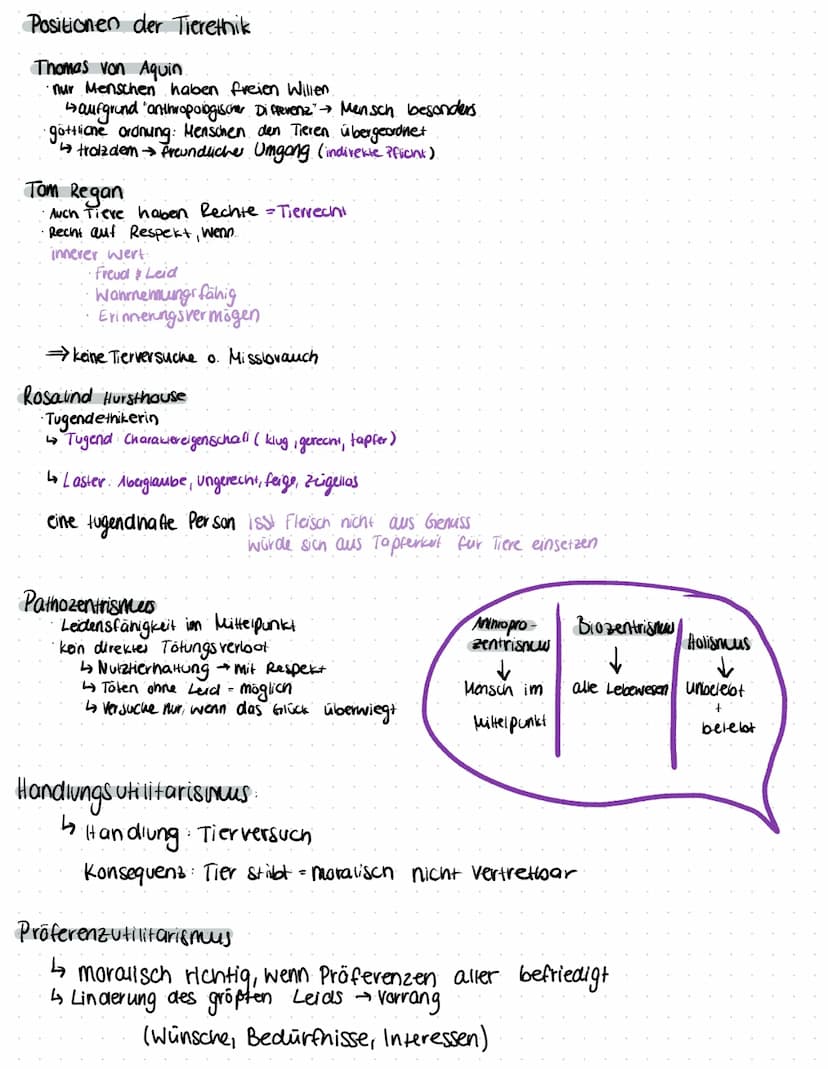 Positionen der Tierethik
Thomas von Aquin
· nur Menschen haben freien Willen
↳ aufgrund "anthropologischer Differenz" → Mensch besonders
· göttliche Ordnung: Menschen den Tieren übergeordnet
↳ trotzdem → freundlicher Umgang (indirekte Pflicht)
Tom Regan
· Auch Tiere haben Rechte = Tierrecht
· Recht auf Respekt, wenn
innerer Wert
· Freud & Leid
· Wahrnemungsfähig
· Erinnerungsvermögen
⇒ keine Tierversuche o. Missbrauch
Rosalind Hursthouse
· Tugendethikerin
↳ Tugend: Charaktereigenschaft (klug, gerecht, tapfer)
↳ Laster: Aberglaube, ungerecht, feige, zügellos
eine tugendhafte Person isst Fleisch nicht aus Genuss
würde sich aus Tapferkeit für Tiere einsetzen
Pathozentrismus
· Leidensfähigkeit im Mittelpunkt
· kein direktes Tötungsverbot
↳ Nutztierhaltung → mit Respekt
↳ Töten ohne Leid = möglich
↳ Versuche nur, wenn das Glück überwiegt
Anthropo-
zentrismus
↓
Mensch im
Mittelpunkt
Biozentrismus
↓
alle Lebewesen
Holismus
↓
Unbelebt
+
belebt
Handlungsutilitarismus:
↳ Handlung: Tierversuch
Konsequenz: Tier stibt = moralisch nicht vertretbar
Präferenzutilitarismus
↳ moralisch richtig, wenn Präferenzen aller befriedigt
↳ Linderung des größten Leids → Vorrang
(Wünsche, Bedürfnisse, Interessen)